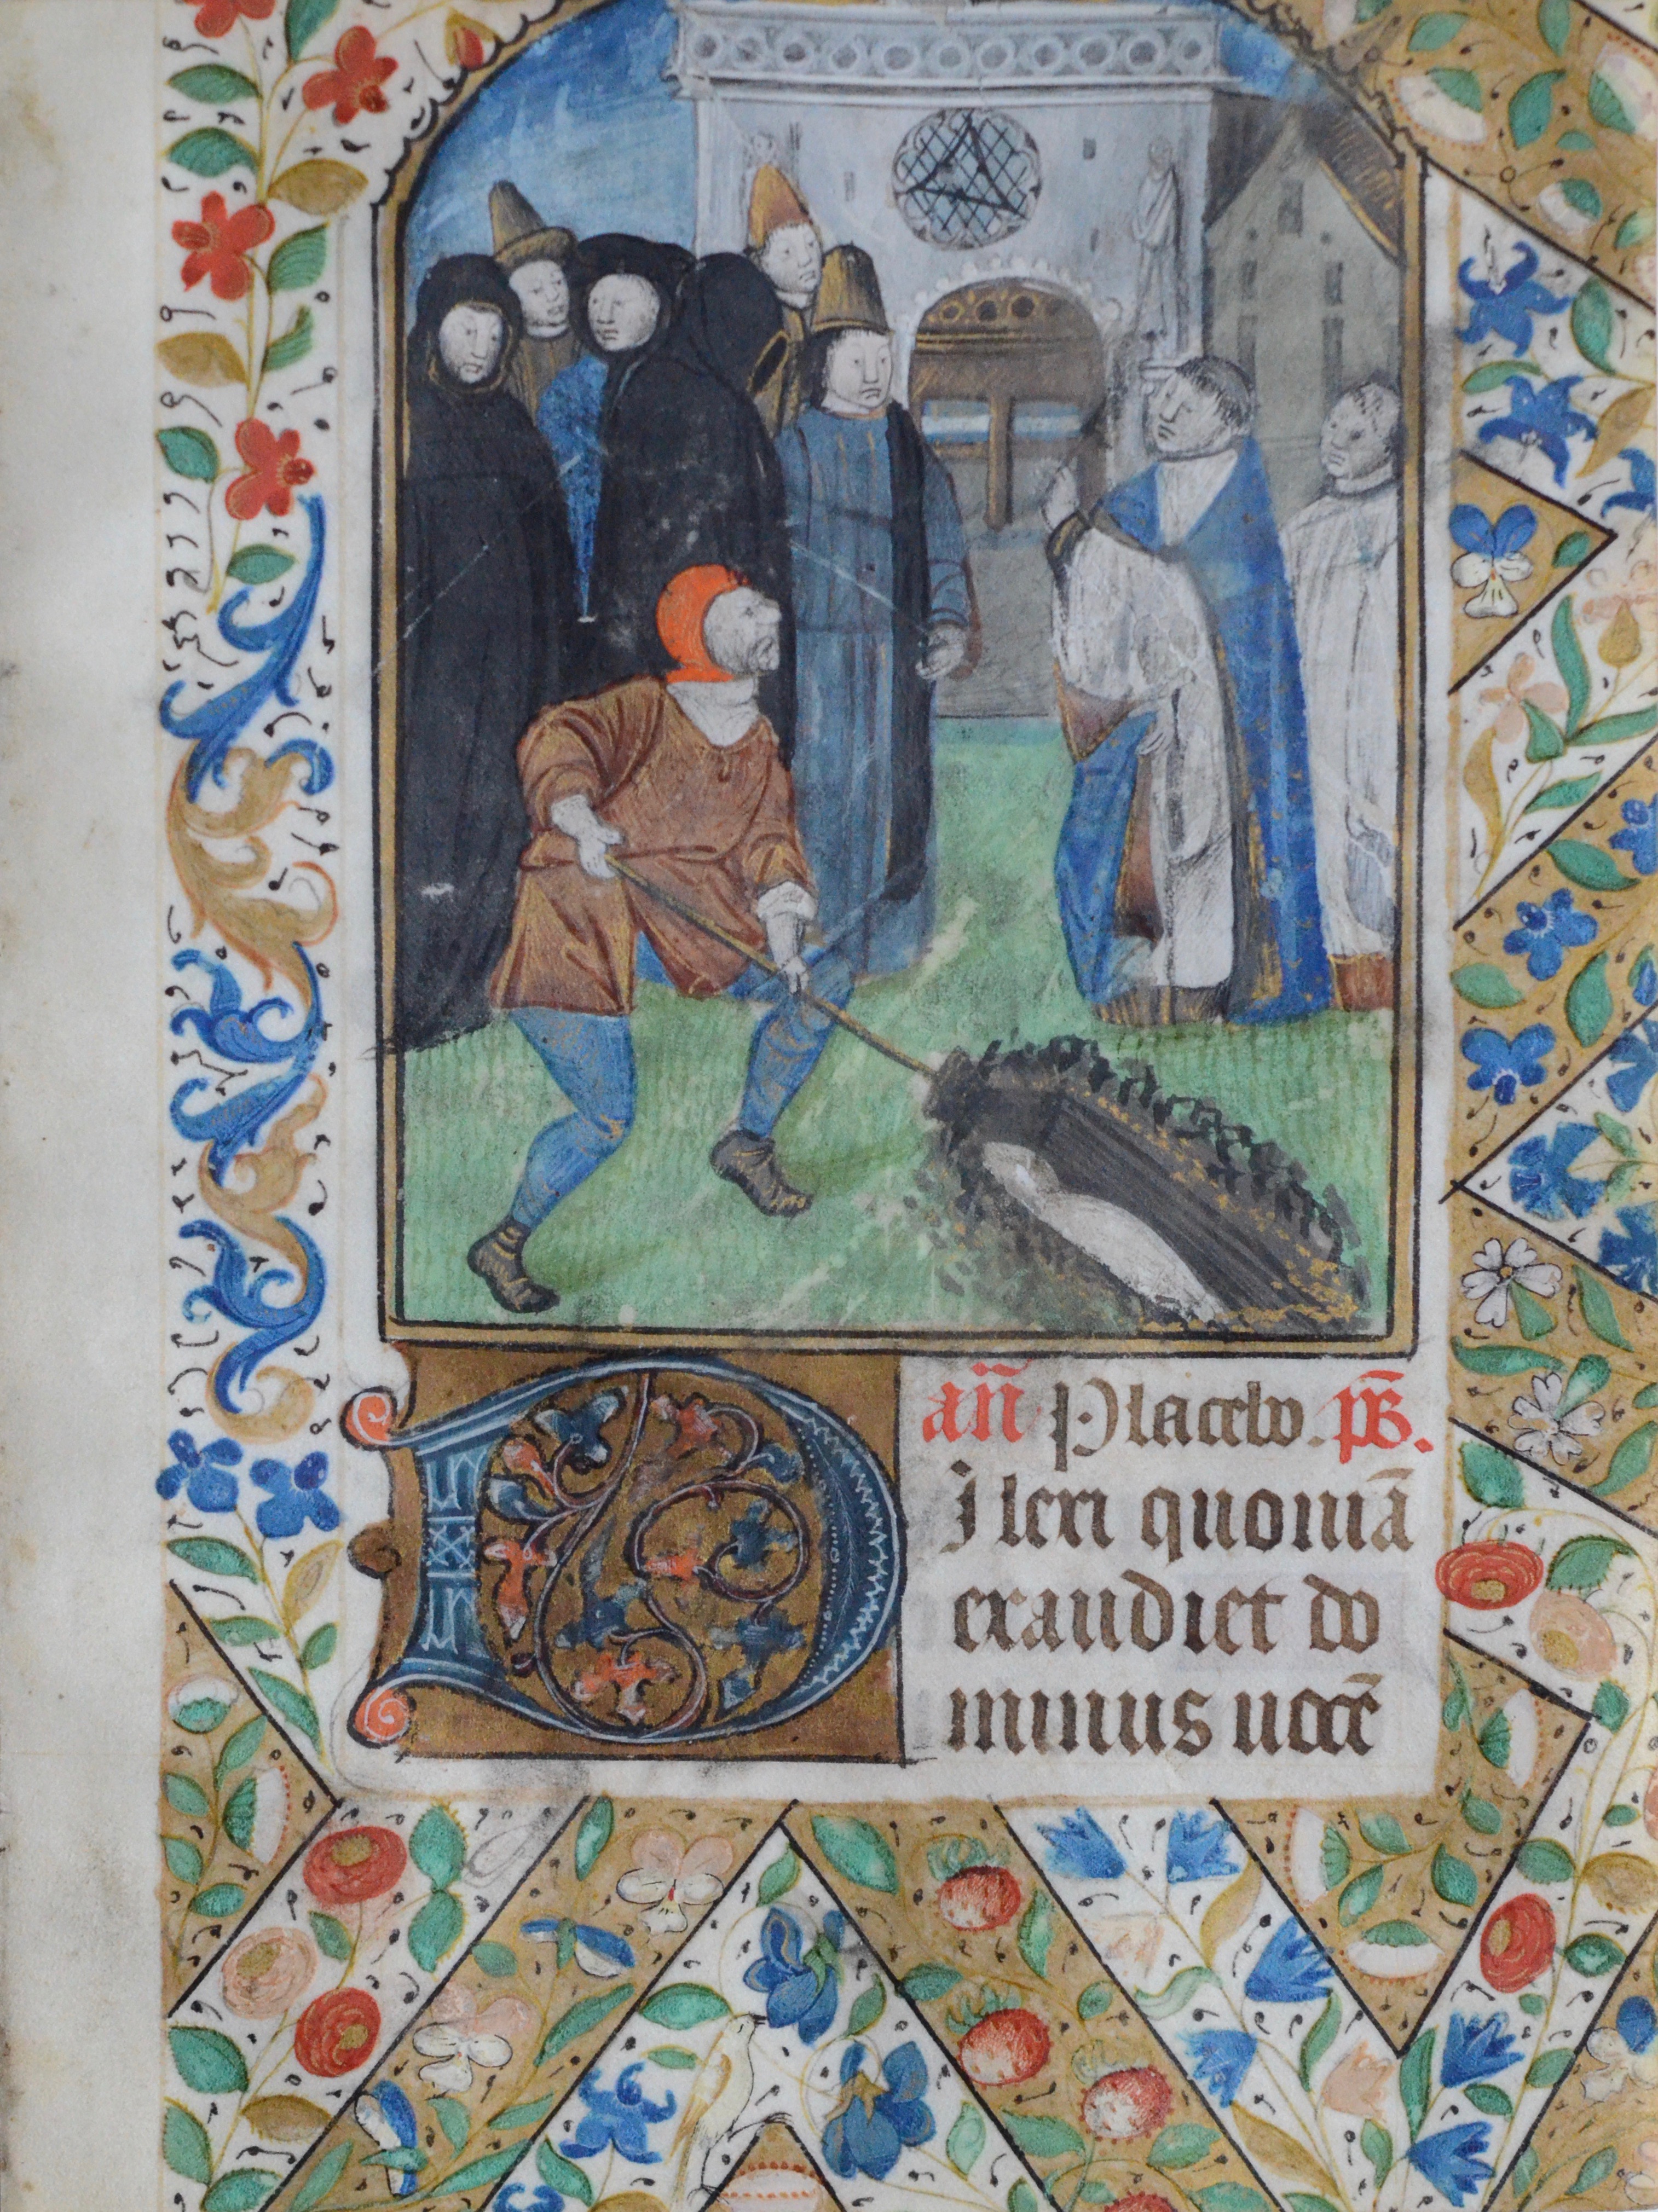 an̄ Placebo. ps̄.
Dilexi quoniā
exaudiet do
minus uocē